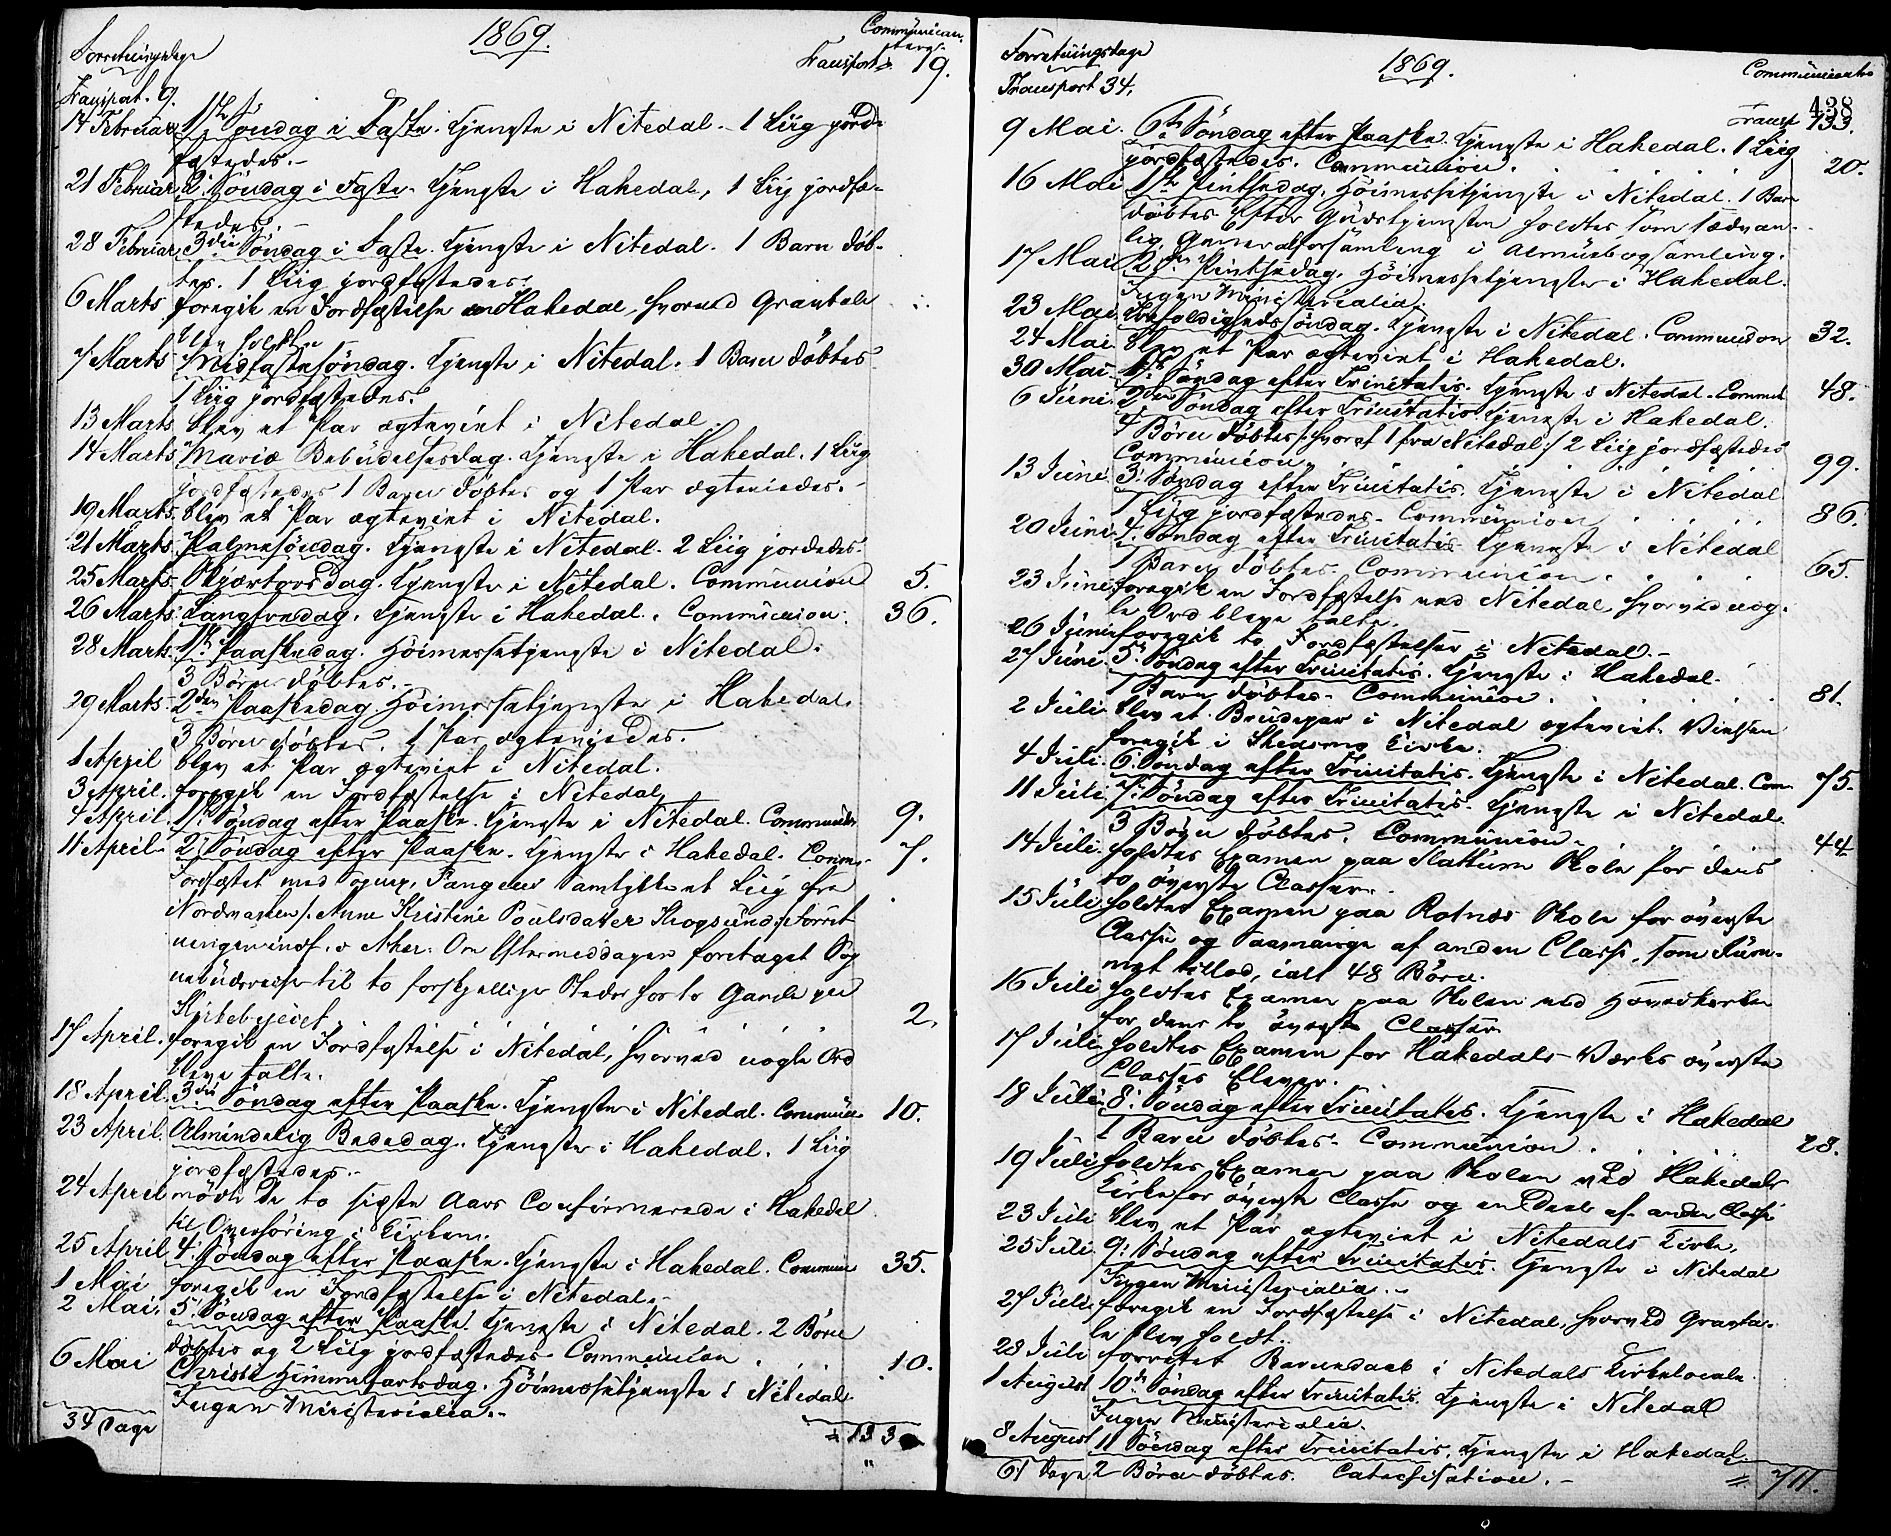 Forretningsdage 1869. Communicanterne.
Transport. 9. Transport 19.
14 Februar 1ste Söndag i Faste. Tjeneste i Nitedal. 1 Liig jord-
fæstedes.-
21 Februar 2. Söndag i Faste. Tjeneste i Hakedal, 1 Liig jordfæ-
stedes.-
28 Februar 3die Söndag i Faste. Tjeneste i Nitedal. 1 Barn döb-
tes. 1 Liig jordfæstedes.
6 Marts foregik en Jordfæstelse Hakedal, hvorved Gravtale
blev holdt.
7 Marts Midfastesöndag. Tjeneste i Nitedal. 1 Barn döbtes
1 Liig jordfæstedes.
13 Marts blev et Par ægteviet i Nitedal.
14 Marts Mariæ Bebudelsesdag. Tjeneste i Hakedal. 1 Liig
jordfæstedes 1 Barn döbtes og 1 Par ægteviedes.-
19 Marts. blev et Par ægteviet i Nitedal.
21 Marts. Palmesöndag. Tjeneste i Nitedal. 2 Liig jordedes.
25 Marts. Skjærtorsdag. Tjeneste i Nitedal. Communion 5.
26 Marts. Langfredag. Tjeneste i Hakedal. Communion. 36.
28 Marts. 1ste Paaskedag. Höimessetjeneste i Nitedal.
3 Börn döbtes.-
29 Marts 2den Paaskedag Höimessetjeneste i Hakedal.
3 Börn döbtes. 1 Par ægteviedes.
1 April blev et Par ægteviet i Nitedal.
3 April. foregik en Jordfæstelse i Nitedal
4 April. 1ste Söndag efter Paaske. Tjeneste i Nitedal. Communion 9.
11 April. 2. Söndag efter Paaske. Tjeneste i Hakedal. Comm. 7.
Jordfæstet med Sogpr. Fangens Samtykke et Liig fra
Nordmarken /: Anne Kristine Poulsdatter Skogsund :/ Forret-
ningen indf. i Aker. Om Eftermiddagen foretaget Sog-
nebudsreise til to forskjellige Steder hos to Gamle ved
Kirkebyeiet. 2.
17 April. foregik en Jordfæstelse i Nitedal, hvorved nogle Ord
bleve talte.
18 April. 3die Söndag efter Paaske. Tjeneste i Nitedal. Commun. 10.
23 April. Almindelig Bededag. Tjeneste i Hakedal. 1 Liig
jordfæstedes.-
24 April mödte de to sidste Aars Confirmerede i Hakedal
til Overhöring i Kirken.
25 April 4. Söndag efter Paaske. Tjeneste i Hakedal. Commun 35.
1 Mai foregik en Jordfæstelse i Nitedal.-
2 Mai. 5. Söndag efter Paaske. Tjeneste i Nitedal. 2 Börn
döbtes og 2 Liig jordfæstedes. Communion . . . 10.
6 Mai Christi Himmelfartsdag. Höimessetjeneste i Nitedal
Ingen Ministerialia.-
34 Dage 133
Forretningsdage 1869. Communicanter
Transport 34. 438
Transp. 133.
9 Mai. 6te Söndag efter Paaske. Tjeneste i Hakedal. 1 Liig
jordfæstedes. Communion. 20.
16 Mai 1ste Pintsedag. Höimessetjeneste i Nitedal. 1 Barn
döbtes Efter Gudstjenesten holdtes som sædvan-
lig Generalforsamling i Almuebogsamling.
17 Mai 2den Pintsedag. Höimessetjeneste i Hakedal.
Ingen Ministerialia.
23 Mai. Trefoldighedssöndag. Tjeneste i Nitedal. Communion 32.
24 Mai blev et Par ægteviet i Hakedal.
30 Mai. 1ste Söndag efter Trinitatis. Tjeneste i Nitedal. Commun 48.
6 Juni. 2den Söndag efter Trinitatis Tjeneste i Hakedal.
4 Börn döbtes /: hvoraf 1 fra Nitedal :/ 2 Liig jordfæstedes
Communion. 99.
13 Juni. 3. Söndag efter Trinitatis. Tjeneste i Nitedal
1 Liig jordfæstedes. Communion . . . 86.
20 Juni. 4. Söndag efter Trinitatis Tjeneste i Nitedal
1 Barn döbtes. Communion. . . . 65.
23 Juni foregik en Jordfæstelse ved Nitedal, hvorved nog-
le Ord bleve talte.
26 Juni foregik to Jordfæstelser i Nitedal.-
27 Juni. 5. Söndag efter Trinitatis. Tjeneste i Hakedal.
1 Barn döbtes. Communion. . . . 81.
2 Juli blev et Brudepar i Nitedal ægteviet. Vielsen
foregik i Skedsmo Kirke.
4 Juli. 6. Söndag efter Trinitatis. Tjeneste i Nitedal. Com. 75.
11 Juli. 7. Söndag efter Trinitatis. Tjeneste i Nitedal.
3 Börn döbtes. Communion. . . 44
14 Juli. holdtes Examen paa Slattum Skole for dens
to överste Classer.
15 Juli holdtes Examen paa Rotnæs Skole for överste
Classe og Saamange af anden Classe, som Rum-
met tillod, ialt 48 Börn.
16 Juli holdtes Examen paa Skolen ved Hovedkirken
for dens to överste Classer.
17 Juli holdtes Examen for Hakedals-Værks överste
Classes Elever.
18 Juli 8. Söndag efter Trinitatis. Tjeneste i Hakedal
1 Barn döbtes. Communion . . . 28.
19 Juli holdtes Examen paa Skolen ved Hakedals
Kirke for överste Classe og en Deel af anden Classe
23 Juli blev et Par ægteviet i Nitedals Kirke.
25 Juli. 9. Söndag efter Trinitatis. Tjeneste i Nitedal
Ingen Ministerialia.-
27 Juli foregik en Jordfæstelse i Nitedal, hvorved Gravta-
le blev holdt.
28 Juli forrettet Barnedaab i Nitedals Kirkelocale.
1 August 10de Söndag efter Trinitatis. Tjeneste i Nitedal
Ingen Ministerialia.
8 August 11 Söndag efter Trinitatis. Tjeneste i Hakedal.
61 Dage 2 Börn döbtes. Catechisation.- 711.